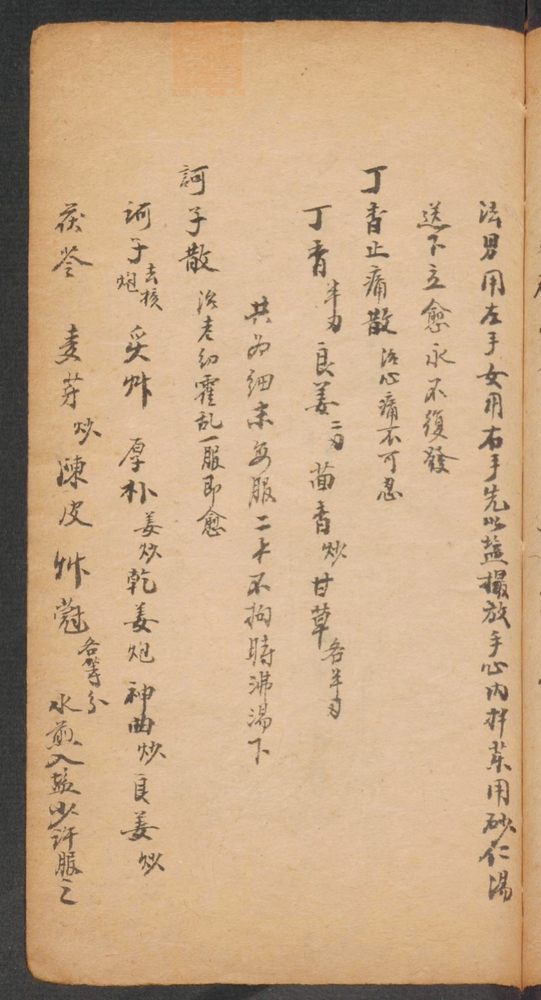 法男用左手女用右手先以盐撮放手心内拌藥用砂仁湯
送下立愈永不復發
丁香止痛散 治心痛不可忍
丁香半刃 良姜二刃 茴香炒 甘草各半刃
共为细末每服二卜不拘時沸湯下
訶子散 治老幼霍乱一服即愈
訶子炮去核 炙艸 厚朴姜炒 乾姜炮 神曲炒 良姜炒
茯苓 麦芽炒 陳皮 艸蔻各等分 水煎入盐少許服之